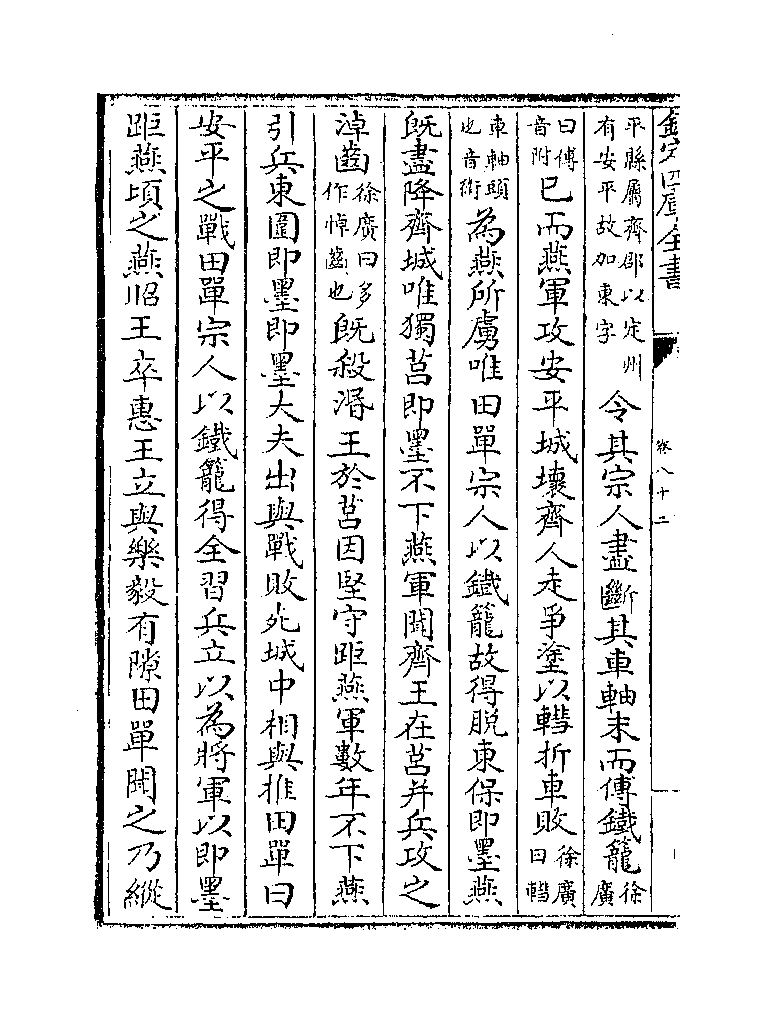 欽定四庫全書
卷八十二
平縣屬齊郡以定州
有安平故加東字
令其宗人盡斷其車軸末而傅鐵籠
徐廣
曰傅
音附
已而燕軍攻安平城壞齊人走爭塗以轊折車敗
徐廣
曰轊
車軸頭
也音衛
為燕所虜唯田單宗人以鐵籠故得脫東保即墨燕
既盡降齊城唯獨莒即墨不下燕軍聞齊王在莒并兵攻之
淖齒
徐廣曰多
作悼齒也
既殺湣王於莒因堅守距燕軍數年不下燕
引兵東圍即墨即墨大夫出與戰敗死城中相與推田單曰
安平之戰田單宗人以鐵籠得全習兵立以為將軍以即墨
距燕頃之燕昭王卒惠王立與樂毅有隙田單聞之乃縱